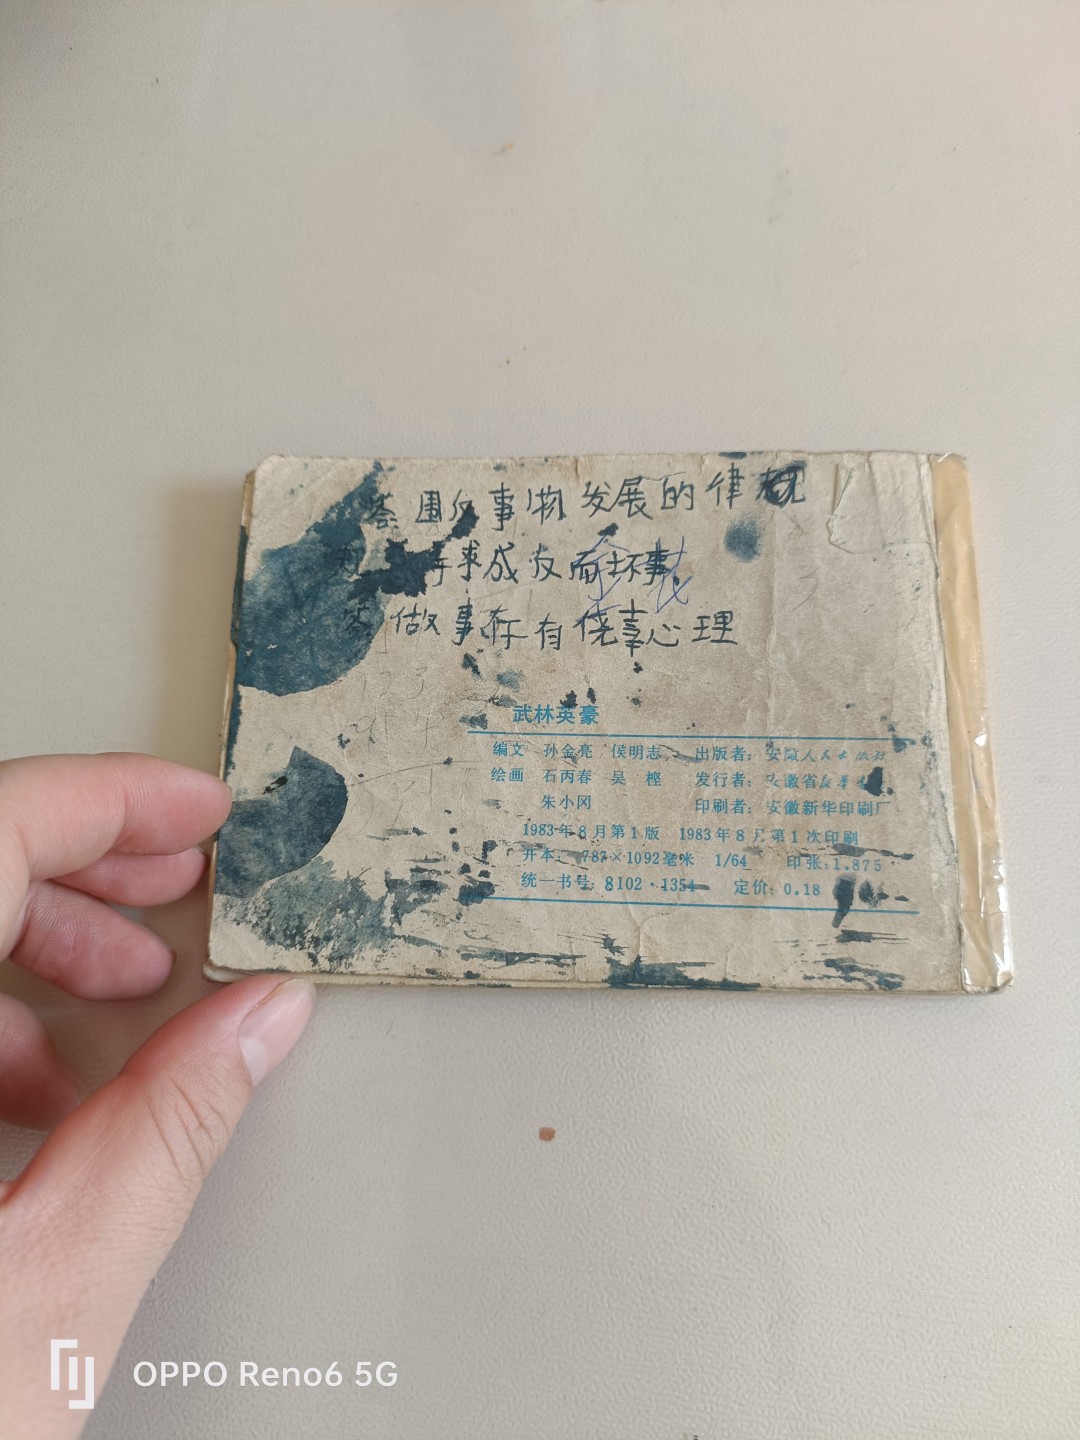 答 围 反 事 物 发 展 的 律 规
求成 反 而 坏事
答 做 事 存 有 侥 幸 心 理
武林英豪
编文 孙金亮 侯明志 出版者：安徽人民出版社
绘画 石丙春 吴 樫 发行者：安徽省新华
朱小冈 印刷者：安徽新华印刷厂
1983年8月第1版 1983年8月第1次印刷
开本 787×1092毫米 1/64 印张：1.875
统一书号：8102·1354 定价：0.18
OPPO Reno6 5G